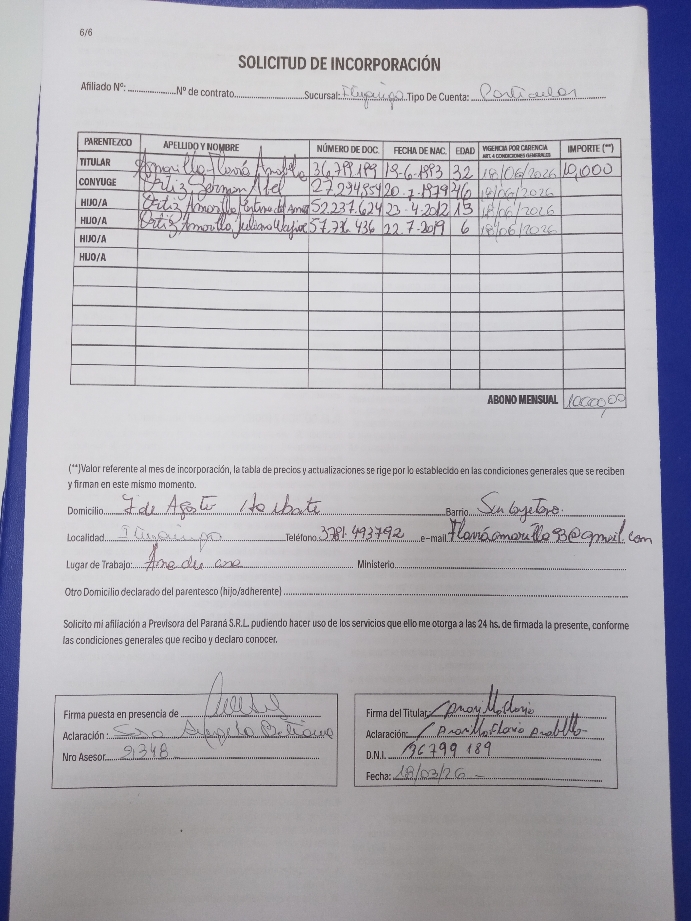 6/6
SOLICITUD DE INCORPORACIÓN
Afiliado Nº: Nº de contrato Sucursal: Tipo De Cuenta: Particular
PARENTEZCO APELLIDO Y NOMBRE NÚMERO DE DOC. FECHA DE NAC. EDAD VIGENCIA POR CARENCIA ART. 4 CONDICIONES GENERALES IMPORTE (**)
TITULAR Amarilla Flavia 36,799,189 19-6-1993 32 18/06/2026 10,000
CONYUGE Ortiz German Abel 27.294,854 20-7-1979 46 18/06/2026
HIJO/A Ortiz Amarilla 52,237,624 23-4-2012 13 18/06/2026
HIJO/A Ortiz Amarilla, Juliano 436 22.7-2019 6 18/06/2026
HIJO/A
HIJO/A
ABONO MENSUAL 10000,00
(**)Valor referente al mes de incorporación, la tabla de precios y actualizaciones se rige por lo establecido en las condiciones generales que se reciben
y firman en este mismo momento.
Domicilio 7 de Agosto Barrio San Cayetano.
Localidad Teléfono: 3781-493792 e-mail
Lugar de Trabajo: Ama de casa Ministerio
Otro Domicilio declarado del parentesco (hijo/adherente)
Solicito mi afiliación a Previsora del Paraná S.R.L. pudiendo hacer uso de los servicios que ello me otorga a las 24 hs. de firmada la presente, conforme
las condiciones generales que recibo y declaro conocer.
Firma puesta en presencia de
Aclaración :
Nro Asesor 9348
Firma del Titular:
Aclaración: Amarilla Flavia
D.N.I. 36799 189
Fecha: 18/03/26